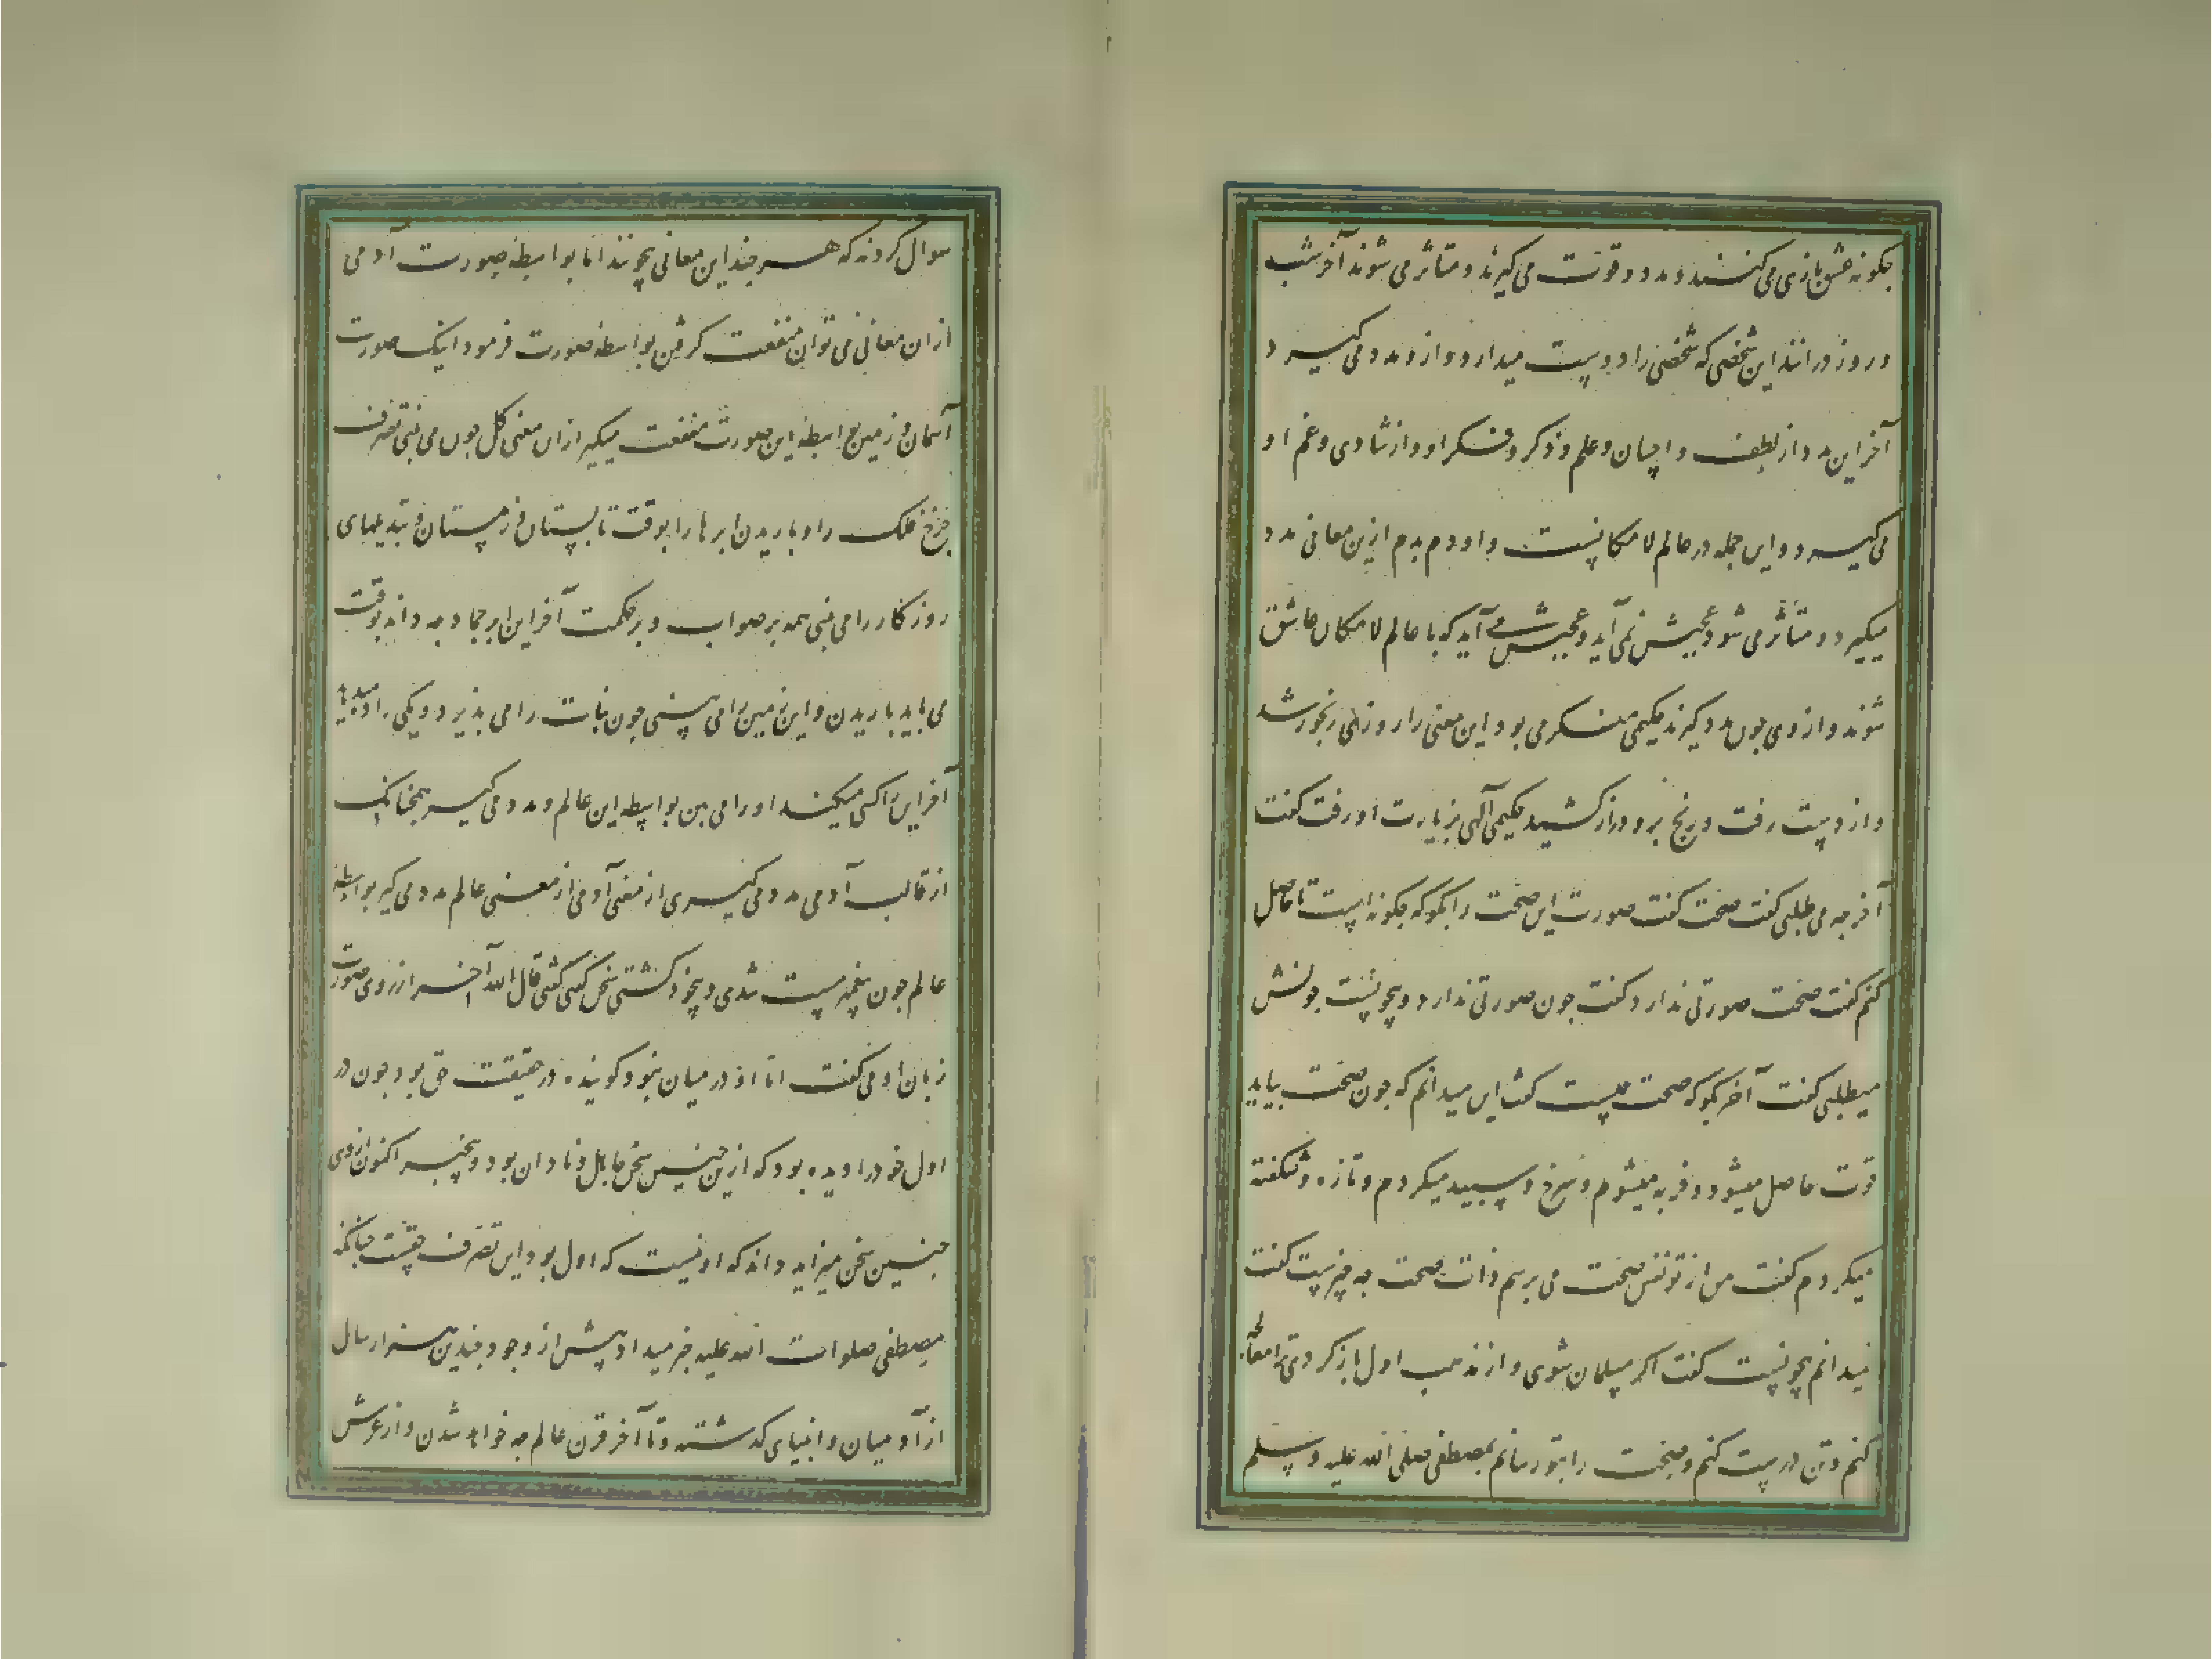 چکونه عشق بازی می کنند و مدد و قوت می گیرند و متاثر می شوند آخر شب
و روز در انند این شخصی که شخصی را دوست میدارد و ازو مدد می کیرد
آخر این مدد از لطف و احسان و علم و ذکر و فکر او و از شادی و غم او
می کیرد و این جمله در عالم لا مکانست و او دم بدم ازین معانی مدد
میکیرد و متأثر می شود عجبش نمی آید و عجبش می آید که با عالم لا مکان عاشق
شوند و از وی جون مدد کیرند حکیمی منکر می بود این معنی را روزی رنجور شد
و از دست رفت و رنج برو دراز کشید حکیمی آلهی بزیارت او رفت کفت
آخر جه می طلبی کفت صحت کفت صورت این صحت را بکو که جکونه است تا حاصل
کنم کفت صحت صورتی ندارد کفت جون صورتی ندارد و بیچونست جونش
میطلبی کفت آخر بکو که صحت چیست کفت این میدانم که جون صحت بیاید
قوت حاصل میشود و فربه میشوم و سرخ و سپید میکردم و تازه و شکفته
میکردم کفت من از تو نفس صحت می برسم ذات صحت جه چیزست کفت
نمیدانم بیچونست کفت اکر مسلمان شوی و از مذهب اول باز کردی ترا معالجه
کنم و تن درست کنم و صحت را بتو رسانم بمصطفی صلی الله علیه و سلم
سوال کردند که هر جند این معانی بیچونند اما بواسطه صورت آدمی
ازان معانی می توان منفعت کرفتن بواسطه صورت فرمود اینک صورت
آسمان و زمین بواسطه این صورت منفعت میکیر ازان معنی کل جون می بینی تصرف
چرخ فلک را و باریدن ابرها را بوقت تابستان و زمستان و تبدیلهای
روزکار را می بینی همه بر صواب و بر حکمت آخر این ابر جماد جه داند بوقت
می باید باریدن و این زمین را می بینی جون نبات را می بذیرد و یکی را ده میدهد
آخر این را کسی میکند او را می بین بواسطه این عالم و مدد می کیر همجنانک
از قالب آدمی مدد می کیری از معنی آدمی از معنی عالم مدد می کیر بواسطه
عالم جون بیغمبر مست شدی و بیخود کشتی سخن کفتی کفتی قال الله آخر از روی صورت
زبان او می کفت اما او در میان نبود کوینده در حقیقت حق بود جون در
اول خود را دیده بود که از جنین سخن جاهل و نادان بود و بیخبر اکنون از وی
جنین سخن میزاید داند که او نیست که اول بود این تصرف حقست جنانکه
مصطفی صلوات الله علیه خبر میداد پیش از وجود جندین هزار سال
از آدمیان و انبیای کذشته و تا آخر قرن عالم جه خواهد شدن و از عرش